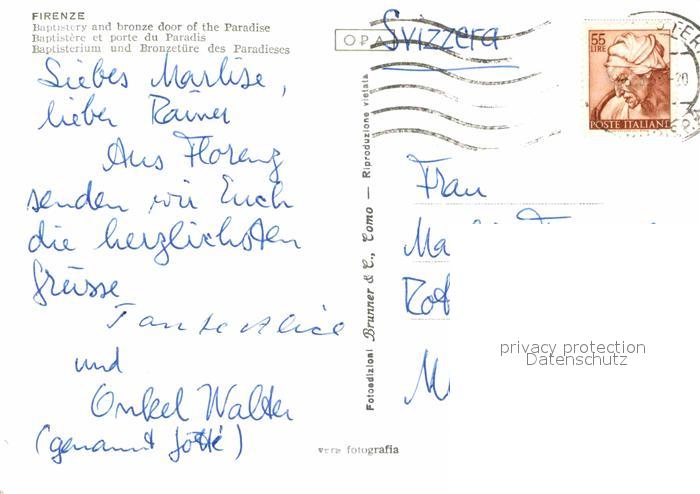 FIRENZE
Baptistery and bronze door of the Paradise
Baptistère et porte du Paradis
Baptisterium und Bronzetüre des Paradieses
Liebes Marlise,
lieber Rainer
Aus Florenz
senden wir Euch
die herzlichsten
Grüsse
Tante Alice
und
Onkel Walter
(genannt
Fotoedizioni Brunner & C., Como — Riproduzione vietata
vera fotografia
OPA
Svizzera
55
LIRE
POSTE ITALIANE
Frau
Ma
M
privacy protection
Datenschutz